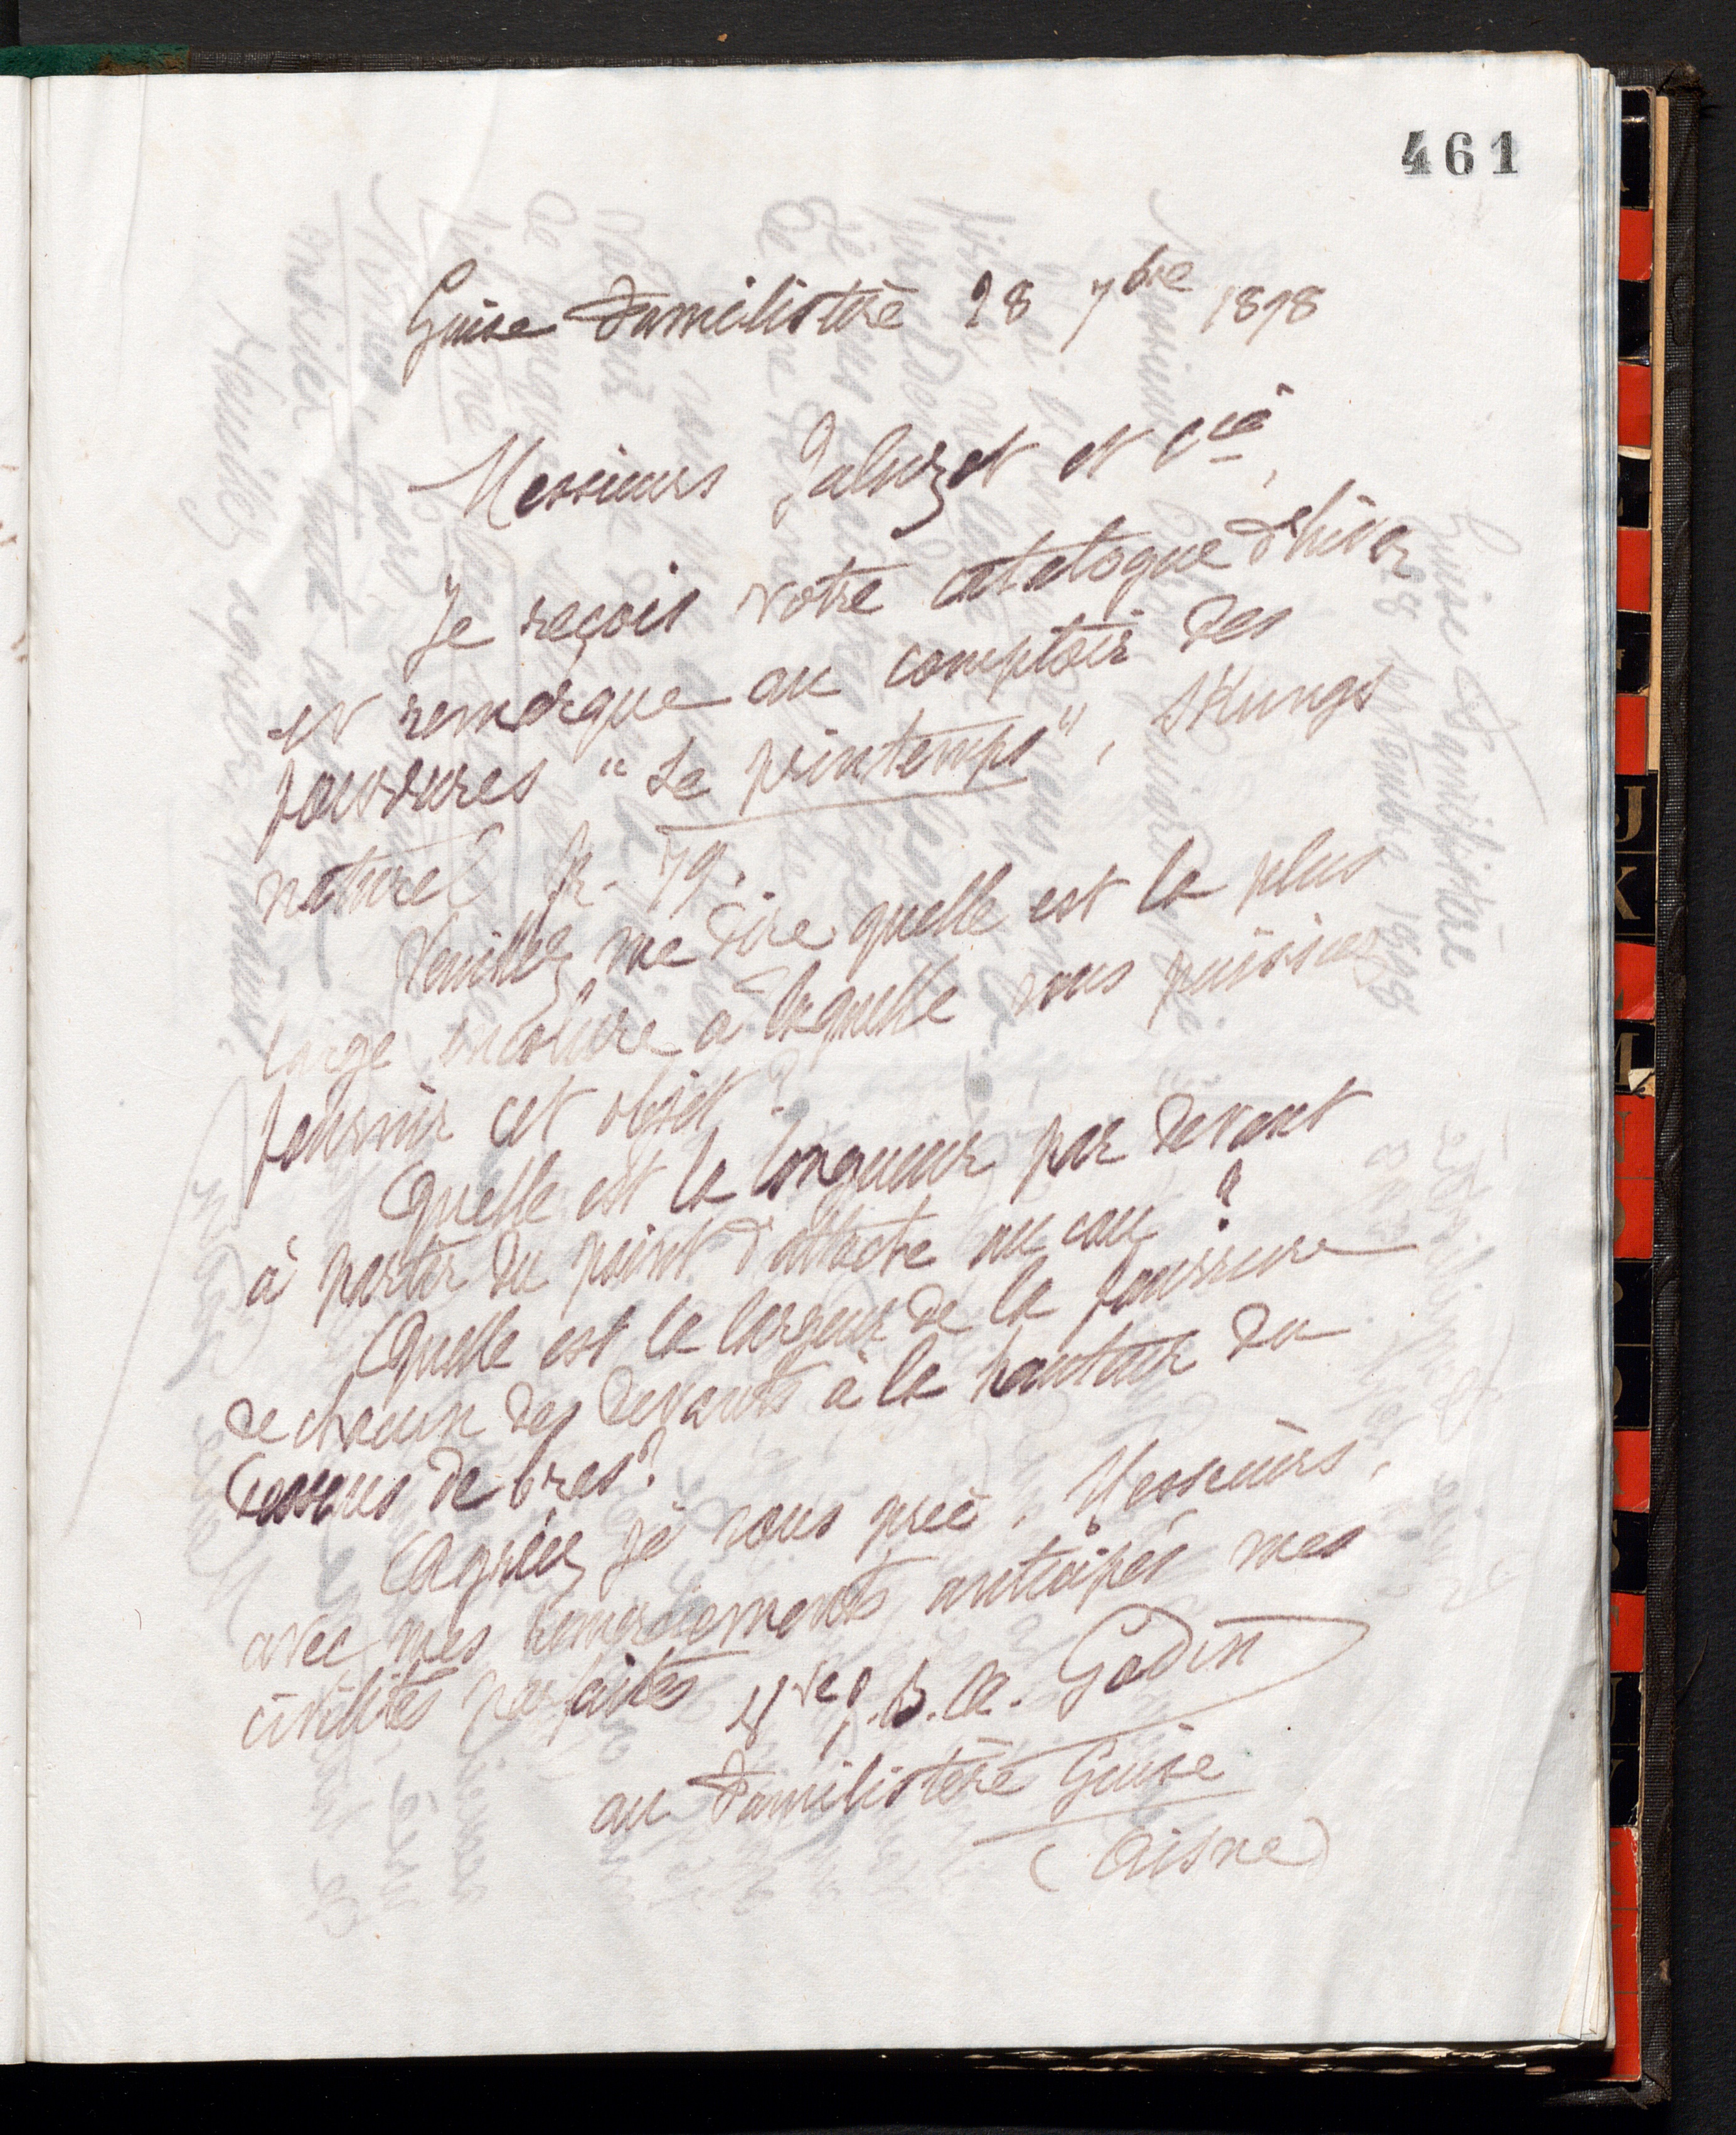 461
Guise Familistère 28 7bre 1898
Messieurs Jaluzot et Cie,
Je reçois votre catalogue d'hiver
et remarque au comptoir des
fourrures "Le printemps", skungs
naturel fr. 79.
Veuillez me dire quelle est la plus
large encolure à laquelle vous puissiez
fournir cet objet ?
Quelle est la longueur par devant
à partir du point d'attache au cou ?
Quelle est la largeur de la fourrure
de chacun des devants à la hauteur du
dessous de bras ?
Agréez je vous prie, Messieurs,
avec mes remerciements anticipés mes
civilités parfaites Vve J. B. A. Godin
au Familistère Guise
(Aisne)